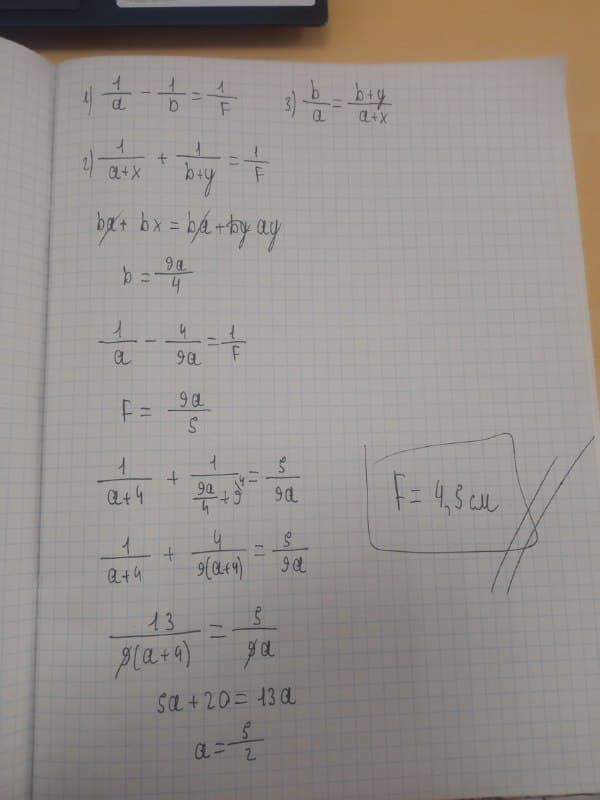 1) 1/a - 1/b = 1/F
3) b/a = (b+y)/(a+x)
2) 1/(a+x) + 1/(b+y) = 1/F
ba + bx = ba + by ay
b = 9a/4
1/a - 4/9a = 1/F
F = 9a/5
1/(a+4) + 1/(9a/4 + 9) = 5/9a
1/(a+4) + 4/9(a+4) = 5/9a
13/9(a+4) = 5/9a
5a + 20 = 13a
a = 5/2
F = 4,5 см